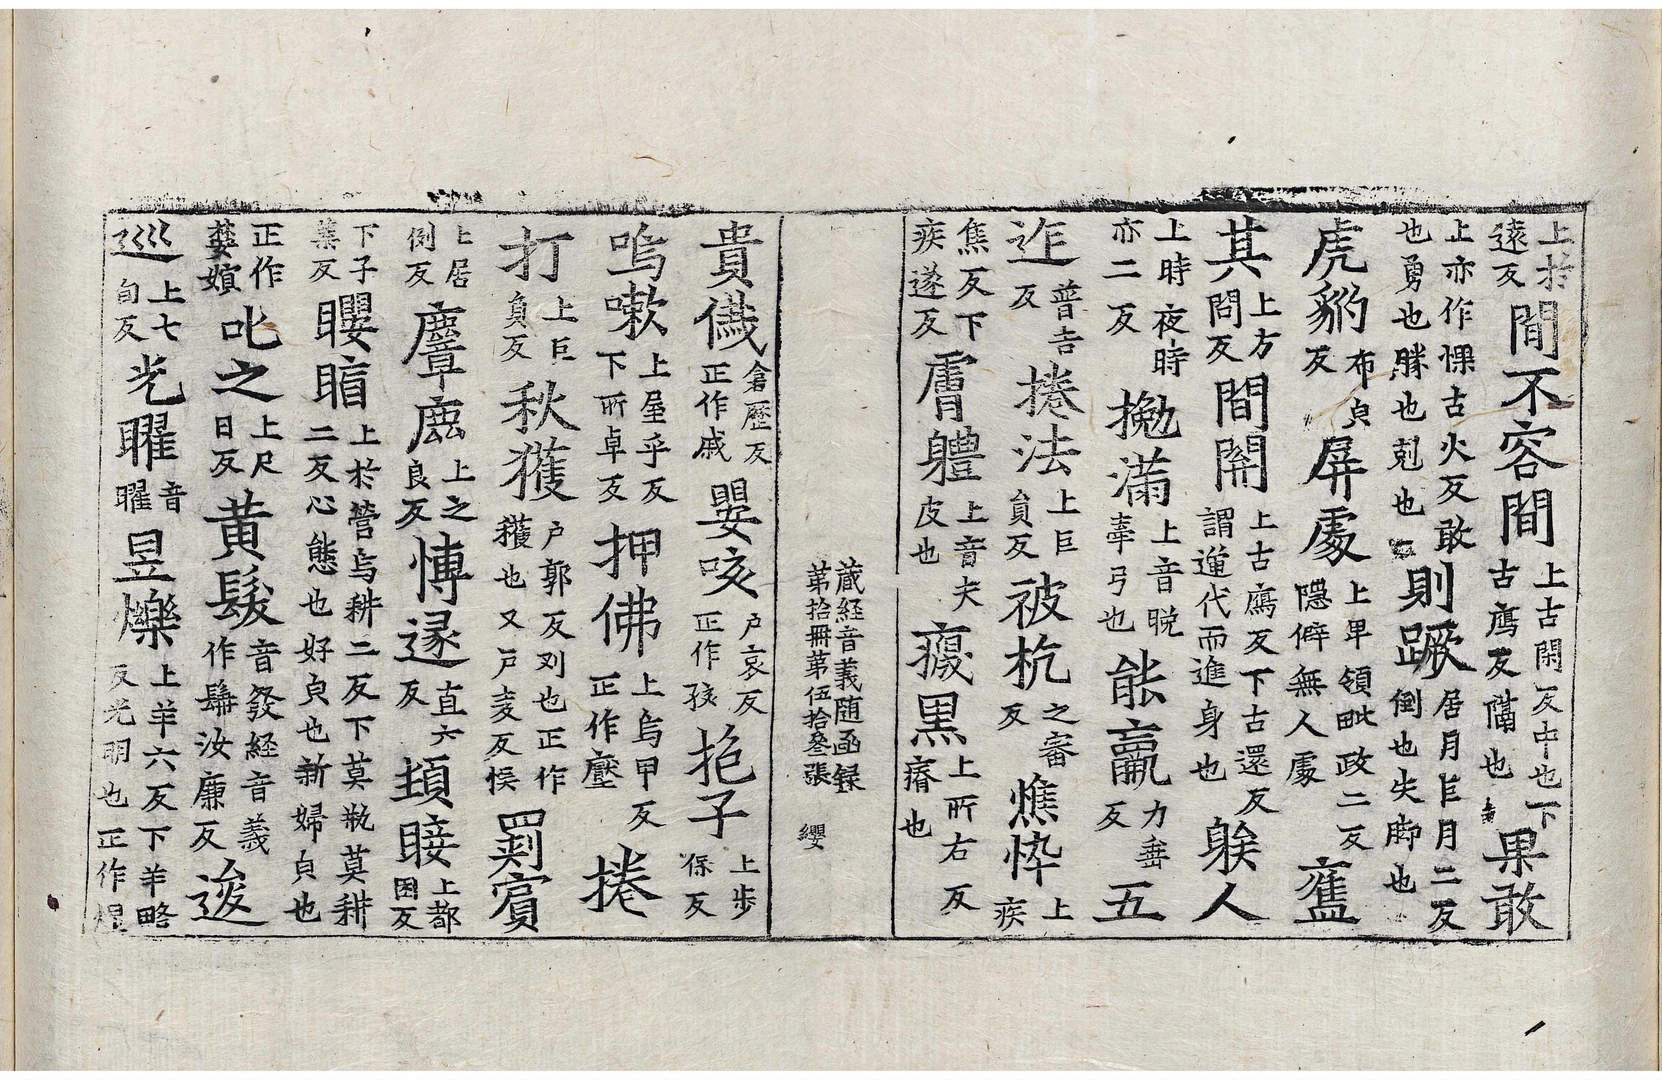 上於遠反間不容間上古閑反中也下古鴈反隔也果敢
上亦作惈古火反敢也勇也勝也剋也則蹶居月巨月二反倒也失脚也
虎豹布皃反屏處上畢領毗政二反隱僻無人處齍
其上方問反間關上古鴈反下古還反謂遞代而進身也躲人
上時夜時亦二反挽滿上音晚牽弓也能羸力垂反五
迮普吉反捲法上巨負反被杭之審反憔悴上疾
焦反下疾遂反膚體上音夫皮也瘢黑上所右反瘠也
藏経音義随函録
第拾冊第伍拾叄張 纓
貴儎倉歷反正作戚嬰咳戸哀反正作孩抱子上步保反
嗚嗽上屋乎反下所卓反押佛上烏甲反正作壓捲
打上巨負反秋獲戸郭反刈也正作穫也又戸麦反悮罰賓
上居例反麞鹿上之良反愽逐直六反頓睫上都困反
下子葉反瞾盲上於營烏耕二反下莫瓶莫耕二反心態也好皃也新婦皃也
正作嫈嫇叱之上尺日反黄髮音發経音義作髴汝廉反逡
巡上七旬反光曜音曜昱爍上羊六反下羊略反光明也正作焜